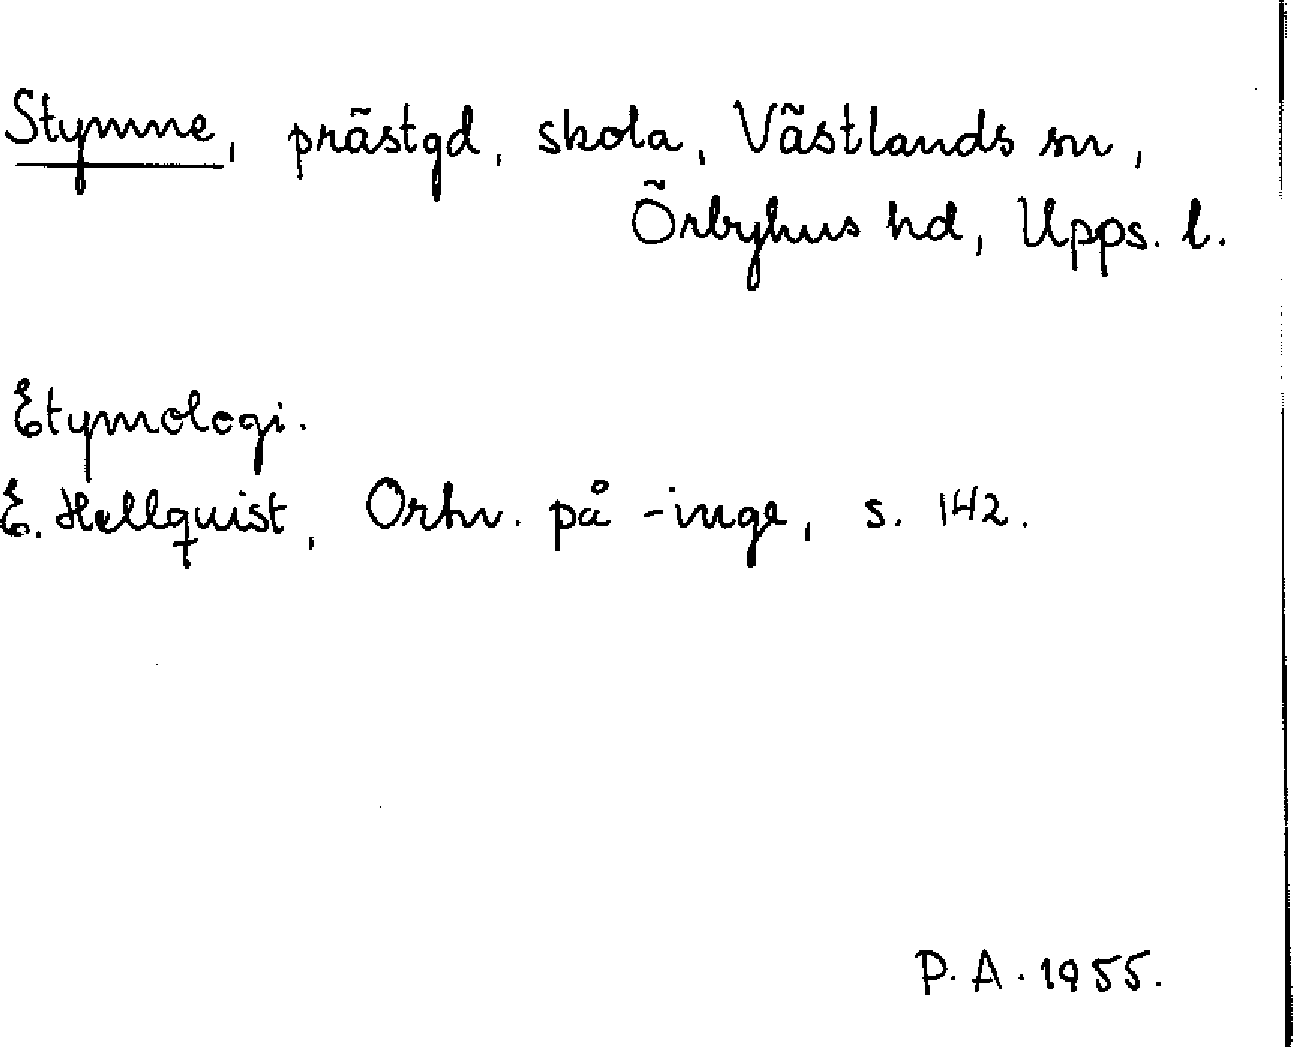 Stymne, prästgd, skola, Västlands sn,
Örbyhus hd, Upps. l.
Etymologi.
E. Hellquist, Ortn. på -inge, s. 142.
P. A. 1955.